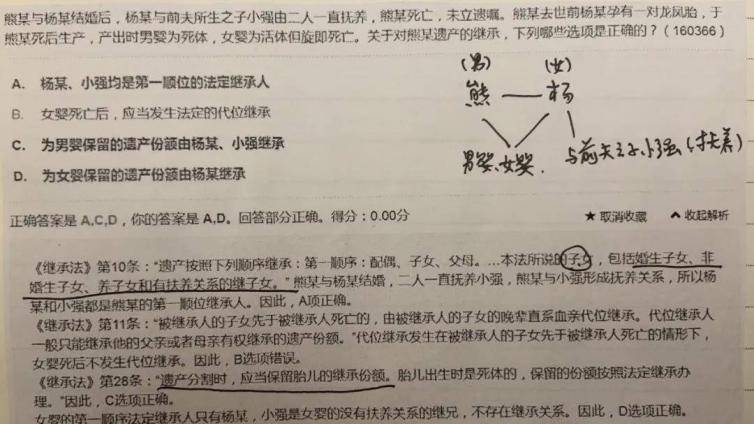 熊某与杨某结婚后，杨某与前夫所生之子小强由二人一直抚养，熊某死亡，未立遗嘱。熊某去世前杨某孕有一对龙凤胎，于
熊某死后生产，产出时男婴为死体，女婴为活体但旋即死亡。关于对熊某遗产的继承，下列哪些选项是正确的？（160366）
A. 杨某、小强均是第一顺位的法定继承人
B. 女婴死亡后，应当发生法定的代位继承
C. 为男婴保留的遗产份额由杨某、小强继承
D. 为女婴保留的遗产份额由杨某继承
(男) (女)
熊 — 杨
男婴、女婴. 与前夫之子小强(扶养)
正确答案是 A,C,D，你的答案是 A,D。回答部分正确。得分：0.00分
★ 取消收藏 ∧ 收起解析
《继承法》第10条：“遗产按照下列顺序继承：第一顺序：配偶、子女、父母。…本法所说的子女，包括婚生子女、非
婚生子女、养子女和有扶养关系的继子女。”熊某与杨某结婚，二人一直抚养小强，熊某与小强形成抚养关系，所以杨
某和小强都是熊某的第一顺位继承人。因此，A项正确。
《继承法》第11条：“被继承人的子女先于被继承人死亡的，由被继承人的子女的晚辈直系血亲代位继承。代位继承人
一般只能继承他的父亲或者母亲有权继承的遗产份额。”代位继承发生在被继承人的子女先于被继承人死亡的情形下，
女婴死后不发生代位继承。因此，B选项错误。
《继承法》第28条：“遗产分割时，应当保留胎儿的继承份额。胎儿出生时是死体的，保留的份额按照法定继承办
理。”因此，C选项正确。
女婴的第一顺序法定继承人只有杨某，小强是女婴的没有扶养关系的继兄，不存在继承关系。因此，D选项正确。